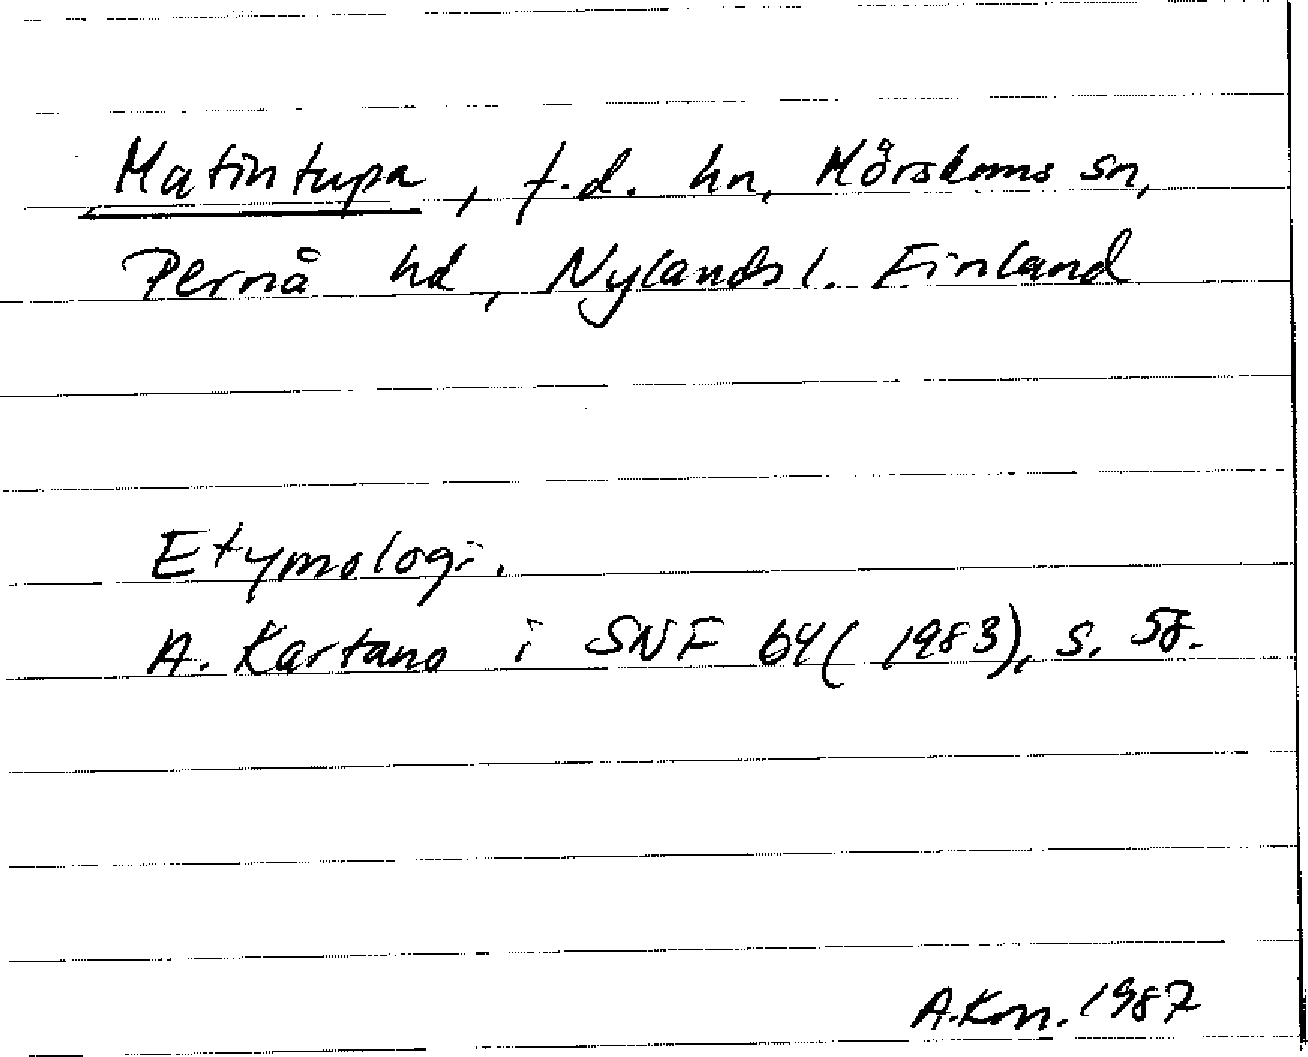 Matintupa, f.d. hn, Mörskoms sn,
Pernå hd, Nylands l. Finland
Etymologi.
A. Kartano i SNF 64 (1983), s. 58.
A.Km. 1987